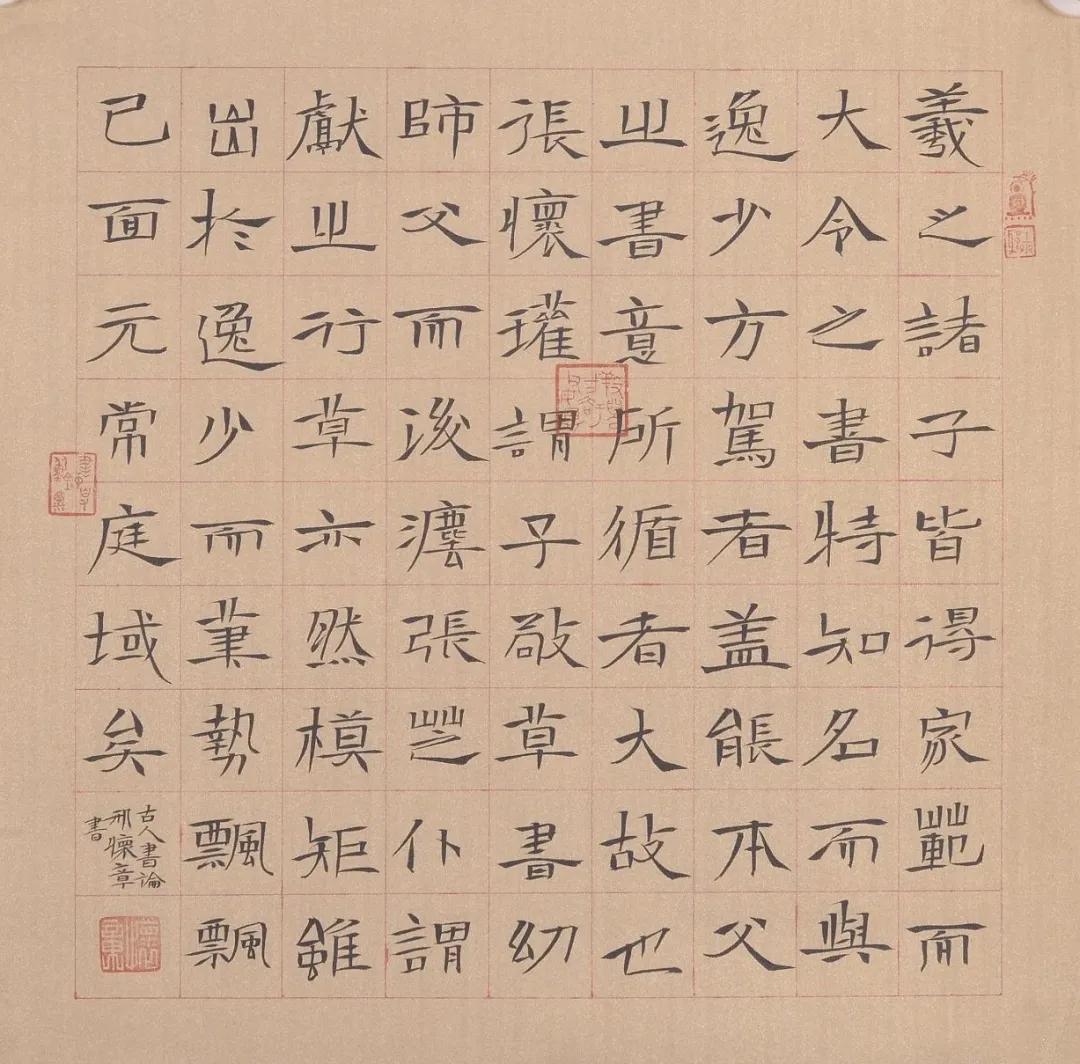 羲之諸子皆得家範而
大令之書特知名而與
逸少方駕者盖能本父
之書意所循者大故也
張懷瓘謂子敬草書幼
師父而後灋張芝仆謂
獻之行草亦然模矩雖
出於逸少而筆勢飄飄
已面元常庭域矣
古人書論
邢懷章
書